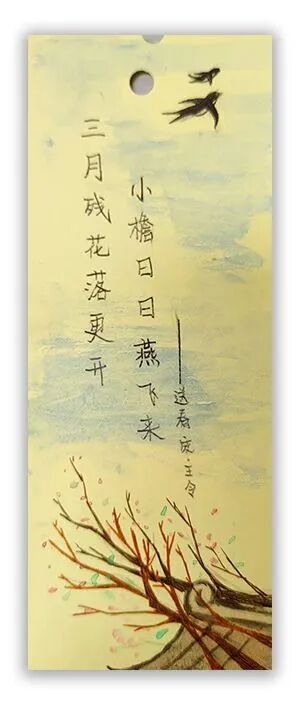 三月残花落更开
小檐日日燕飞来
——送春宋王令